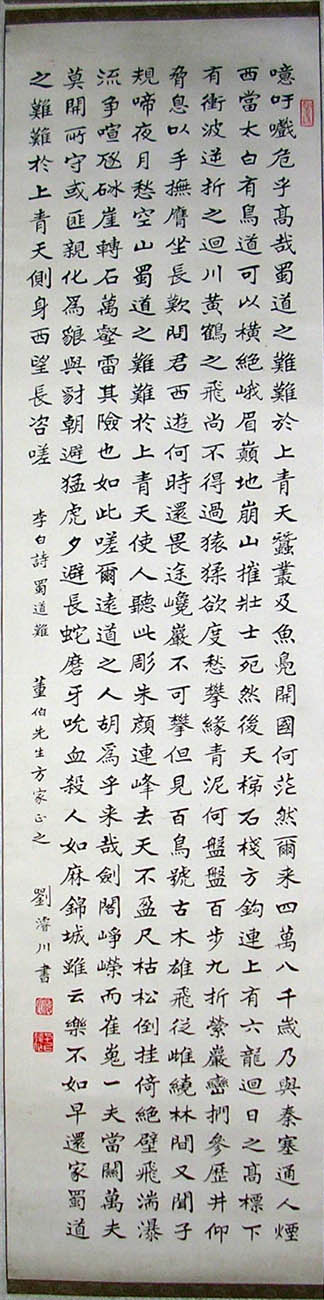 噫吁嚱危乎髙哉蜀道之難難於上青天蠶叢及魚鳧開國何茫然爾来四萬八千歲乃與秦塞通人煙
西當太白有鳥道可以橫絕峨眉巔地崩山摧壯士死然後天梯石棧方鈎連上有六龍迴日之髙標下
有衝波逆折之迴川黃鶴之飛尚不得過猿猱欲度愁攀緣青泥何盤盤百步九折縈巖巒捫參歷井仰
脅息以手撫膺坐長歎問君西遊何時還畏途巉巖不可攀但見百鳥號古木雄飛從雌繞林間又聞子
規啼夜月愁空山蜀道之難難於上青天使人聽此彫朱顏連峰去天不盈尺枯松倒挂倚絕壁飛湍瀑
流争喧豗砯崖轉石萬壑雷其險也如此嗟爾遠道之人胡爲乎来哉劍閣崢嶸而崔嵬一夫當關萬夫
莫開所守或匪親化爲狼與豺朝避猛虎夕避長蛇磨牙吮血殺人如麻錦城雖云樂不如早還家蜀道
之難難於上青天側身西望長咨嗟 李白詩蜀道難 董伯先生方家正之 劉濬川書